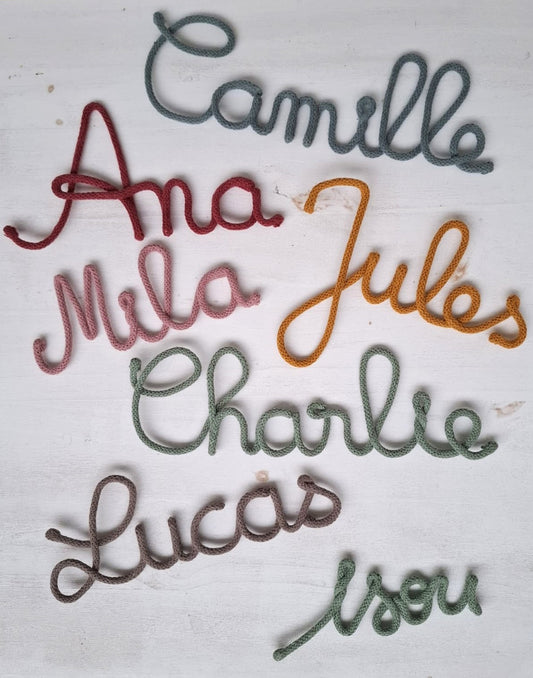 Camille
Ana
Jules
Mila
Charlie
Lucas
Isou